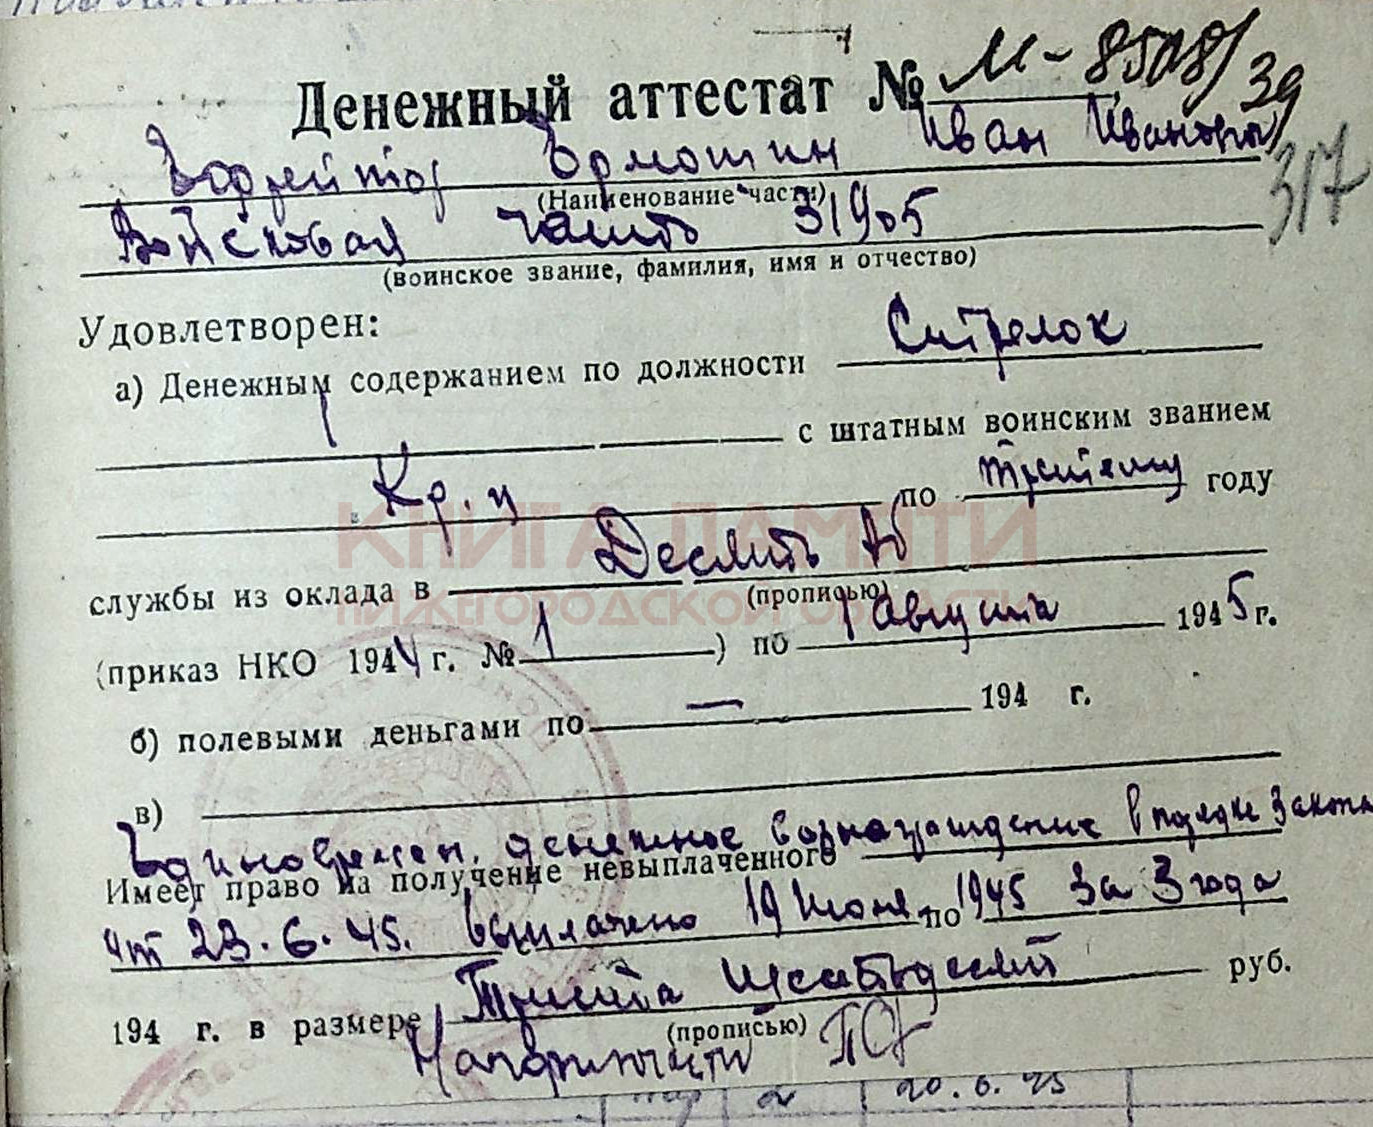 Денежный аттестат № М-8508/39
317
Ефрейтор Ермошин Иван Иванович
(Наименование части)
Войсковая часть 31905
(воинское звание, фамилия, имя и отчество)
Удовлетворен:
а) Денежным содержанием по должности Стрелок
с штатным воинским званием
Кр-ц по третьему году
службы из оклада в Десять
(прописью)
(приказ НКО 1944 г. № 1 ) по 1 августа 1945 г.
б) полевыми деньгами по — 194 г.
в)
Единовремен. денежное вознаграждение в порядке Закона
Имеет право на получение невыплаченного
от 23.6.45. выплачено 19 июня по 1945 за 3 года
194 г. в размере Триста шестьдесят руб.
(прописью)
КНИГА ПАМЯТИ
НИЖЕГОРОДСКОЙ ОБЛАСТИ
2 20.6.45